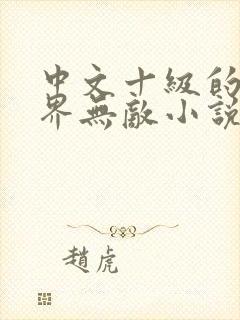 中文十級的
界無敵小説
趙虎